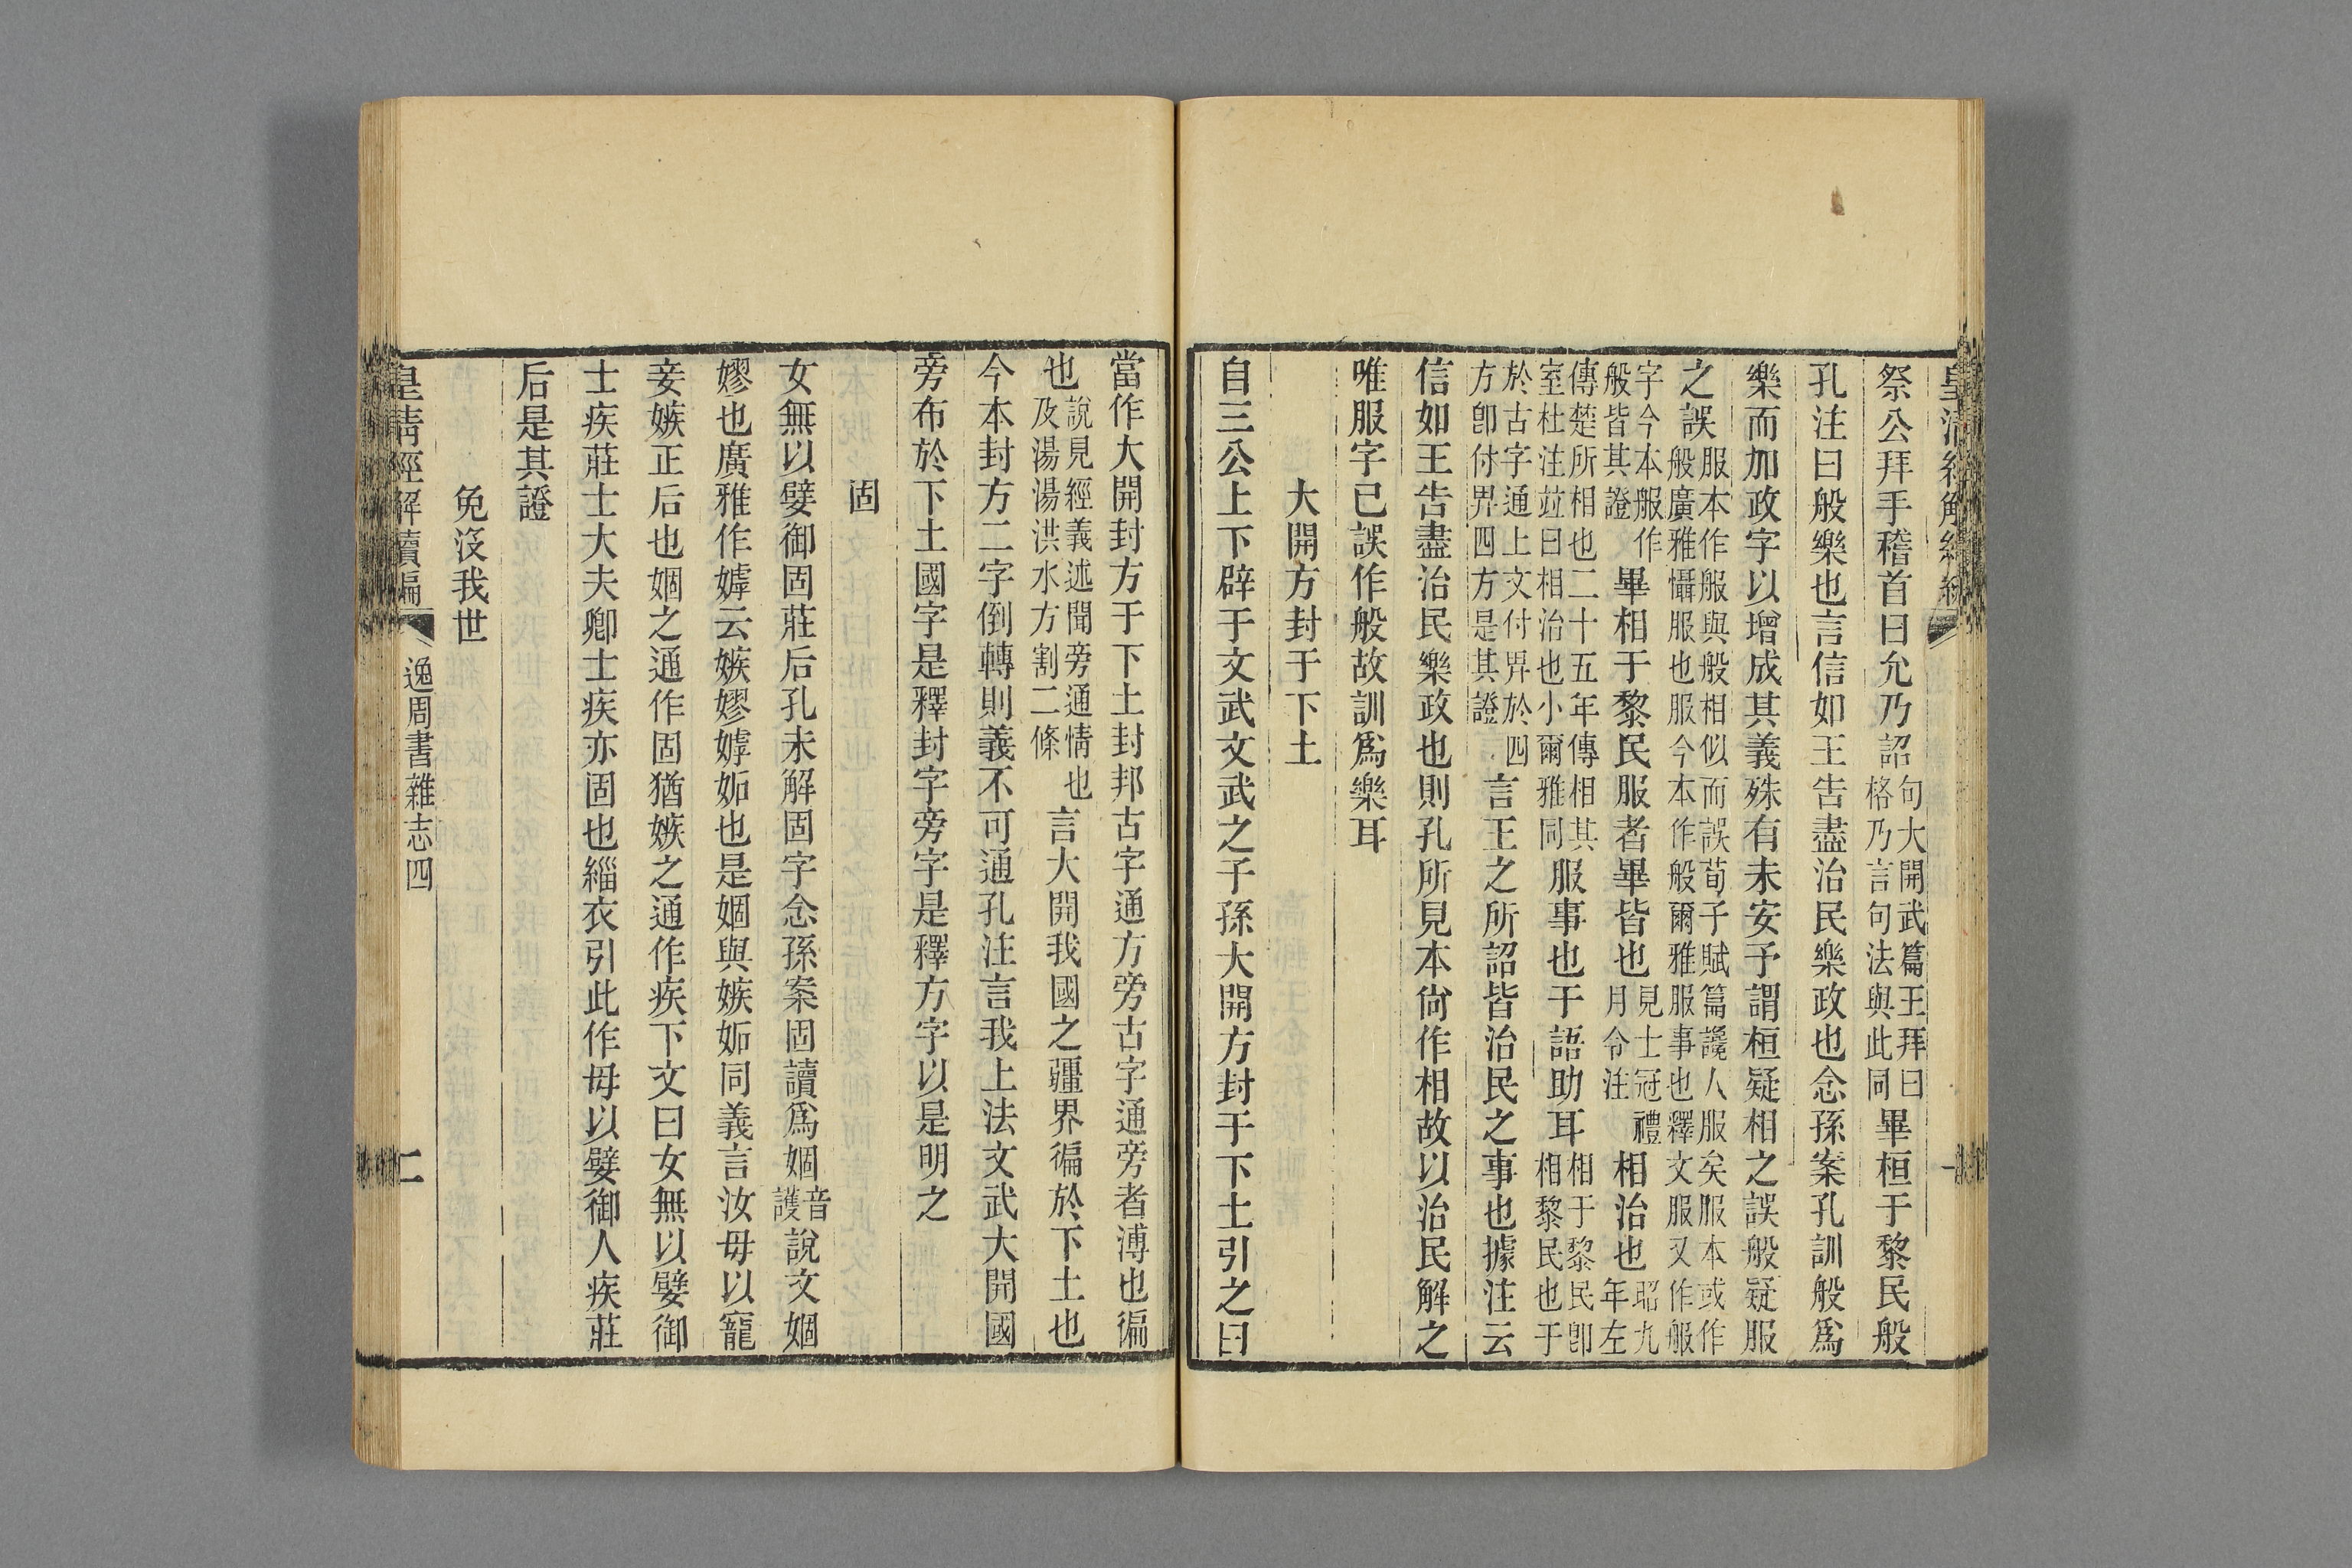 皇清經解續編
祭公拜手稽首曰允乃詔句大開武篇王拜曰格乃言句法與此同畢桓于黎民般
孔注曰般樂也言信如王告盡治民樂政也念孫案孔訓般爲
樂而加政字以增成其義殊有未安予謂桓疑相之誤般疑服
之誤服本作𦨕與般相似而誤荀子賦篇讒人服矣服本或作般廣雅懾服也服今本作般爾雅服事也釋文服又作𦨕
字今本𦨕作般皆其證畢相于黎民服者畢皆也見士冠禮月令注相治也昭九年左
傳楚所相也二十五年傳相其室杜注竝曰相治也小爾雅同服事也于語助耳相于黎民卽相黎民也于
於古字通上文付畀於四方卽付畀四方是其證言王之所詔皆治民之事也據注云
信如王告盡治民樂政也則孔所見本尙作相故以治民解之
唯服字已誤作般故訓爲樂耳
大開方封于下土
自三公上下辟于文武文武之子孫大開方封于下土引之曰
當作大開封方于下土封邦古字通方旁古字通旁者溥也徧
也說見經義述聞旁通情也及湯湯洪水方割二條言大開我國之疆界徧於下土也
今本封方二字倒轉則義不可通孔注言我上法文武大開國
旁布於下土國字是釋封字旁字是釋方字以是明之
固
女無以嬖御固莊后孔未解固字念孫案固讀爲婟音護說文婟
嫪也廣雅作嫭云嫉嫪嫭妬也是婟與嫉妬同義言汝毋以寵
妾嫉正后也婟之通作固猶嫉之通作疾下文曰女無以嬖御
士疾莊士大夫卿士疾亦固也緇衣引此作毋以嬖御人疾莊
后是其證
免沒我世
皇清經解續編 逸周書雜志四 二